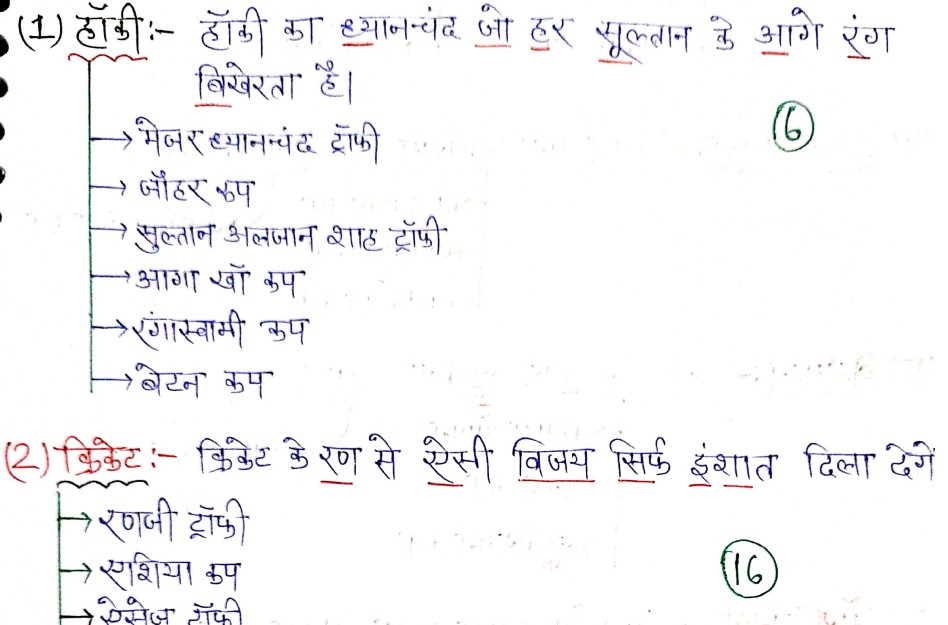 (1) हॉकी:- हॉकी का ध्यानचंद जो हर सूल्तान के आगे रंग
बिखेरता है।
(6)
→ मेजर ध्यानचंद ट्रॉफी
→ जौहर कप
→ सुल्तान अलजान शाह ट्रॉफी
→ आगा खाॅ कप
→ रंगास्वामी कप
→ बेटन कप
(2) क्रिकेट:- क्रिकेट के रण से ऐसी विजय सिर्फ इंशात दिला देगें
→ रणजी ट्रॉफी
→ एशिया कप
(16)
→ ऐसेज ट्रॉफी